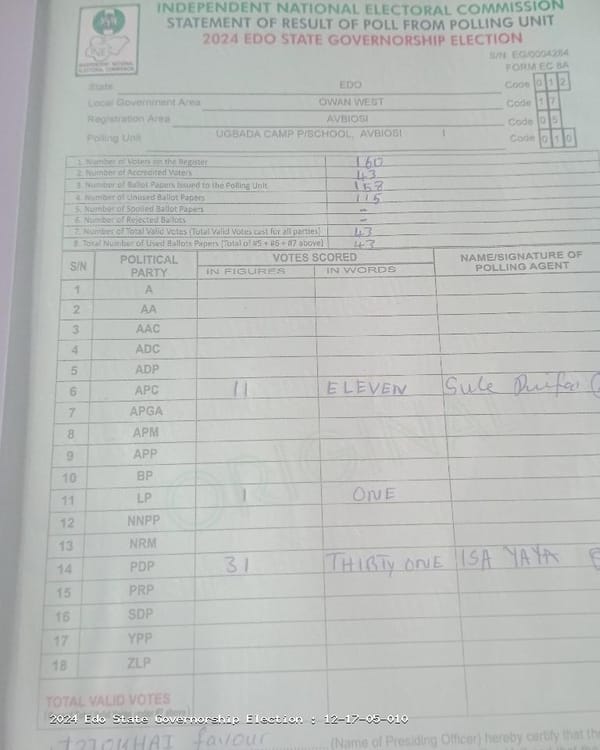 INDEPENDENT NATIONAL ELECTORAL COMMISSION
STATEMENT OF RESULT OF POLL FROM POLLING UNIT
2024 EDO STATE GOVERNORSHIP ELECTION
S/N: EG/0004284
FORM EC 8A
State EDO Code 0 1 2
Local Government Area OWAN WEST Code 1 7
Registration Area AVBIOSI Code 0 5
Polling Unit UGBADA CAMP P/SCHOOL, AVBIOSI I Code 0 1 0
1. Number of Voters on the Register 160
2. Number of Accredited Voters 43
3. Number of Ballot Papers Issued to the Polling Unit 158
4. Number of Unused Ballot Papers 115
5. Number of Spoiled Ballot Papers –
6. Number of Rejected Ballots –
7. Number of Total Valid Votes (Total Valid Votes cast for all parties) 43
8. Total Number of Used Ballots Papers (Total of #5 + #6 + #7 above) 43
S/N POLITICAL PARTY VOTES SCORED NAME/SIGNATURE OF POLLING AGENT
IN FIGURES IN WORDS
1 A
2 AA
3 AAC
4 ADC
5 ADP
6 APC 11 ELEVEN Sule
7 APGA
8 APM
9 APP
10 BP
11 LP 1 ONE
12 NNPP
13 NRM
14 PDP 31 THIRTY ONE ISA YAYA
15 PRP
16 SDP
17 YPP
18 ZLP
ORIGINAL
TOTAL VALID VOTES
2024 Edo State Governorship Election : 12-17-05-010
favour (Name of Presiding Officer) hereby certify that the